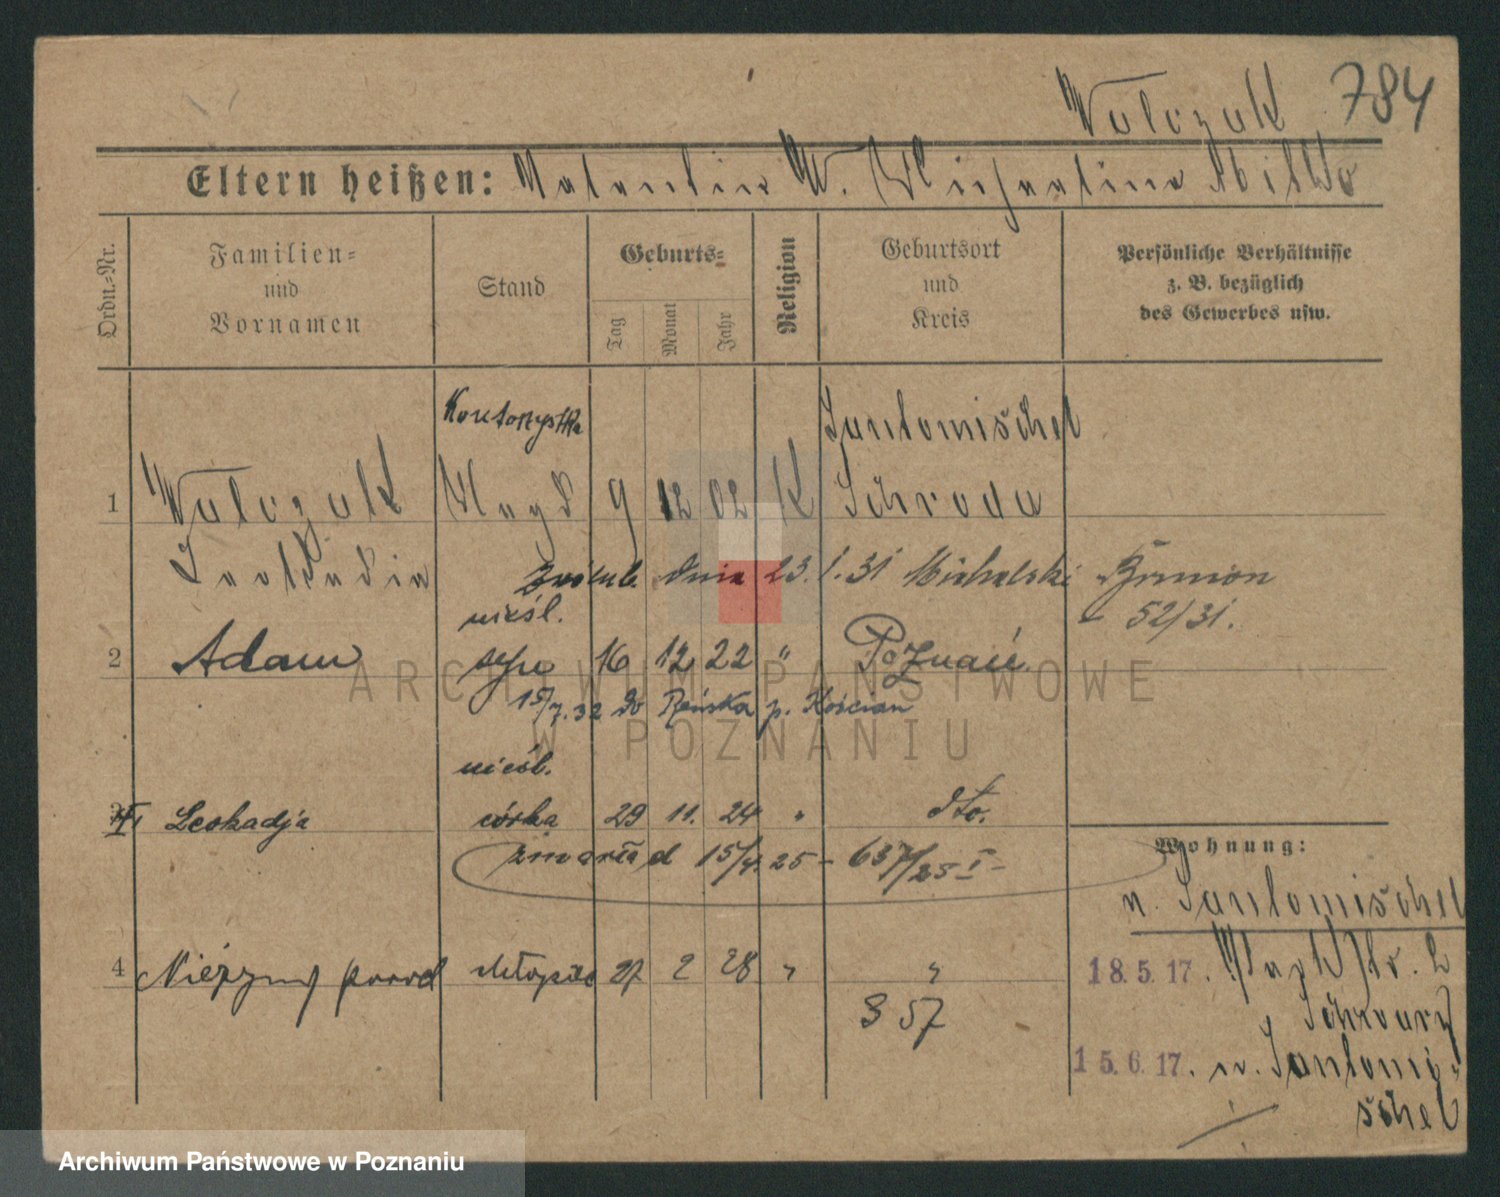 Walczak 784
Eltern heißen: Valentin W. Michaelina
Ordn.-Nr.
Familien-
und
Vornamen
Stand
Geburts-
Tag
Monat
Jahr
Religion
Geburtsort
und
Kreis
Persönliche Verhältnisse
z. B. bezüglich
des Gewerbes usw.
Kontorzystka
Santomischel
1 Walczak Magd 9 12 02 K Schroda
Leokadia
dnia 23.1.31 Michalski
52/31.
nieśl.
2 Adam syn 16 12 22 " Poznań.
15/7.32 do Reńska p. Kościan
nieśl.
3 Leokadja córka 29 11. 24 " dto.
zmarła d 15/4.25 – 637/25 I –
4 Nieżywy poród chłopiec 27 2 28 " "
S 57
Wohnung:
n. Santomischel
18.5.17.
Schwarz
15.6.17. n. Santomi-
schel
ARCHIWUM PAŃSTWOWE
W POZNANIU
Archiwum Państwowe w Poznaniu